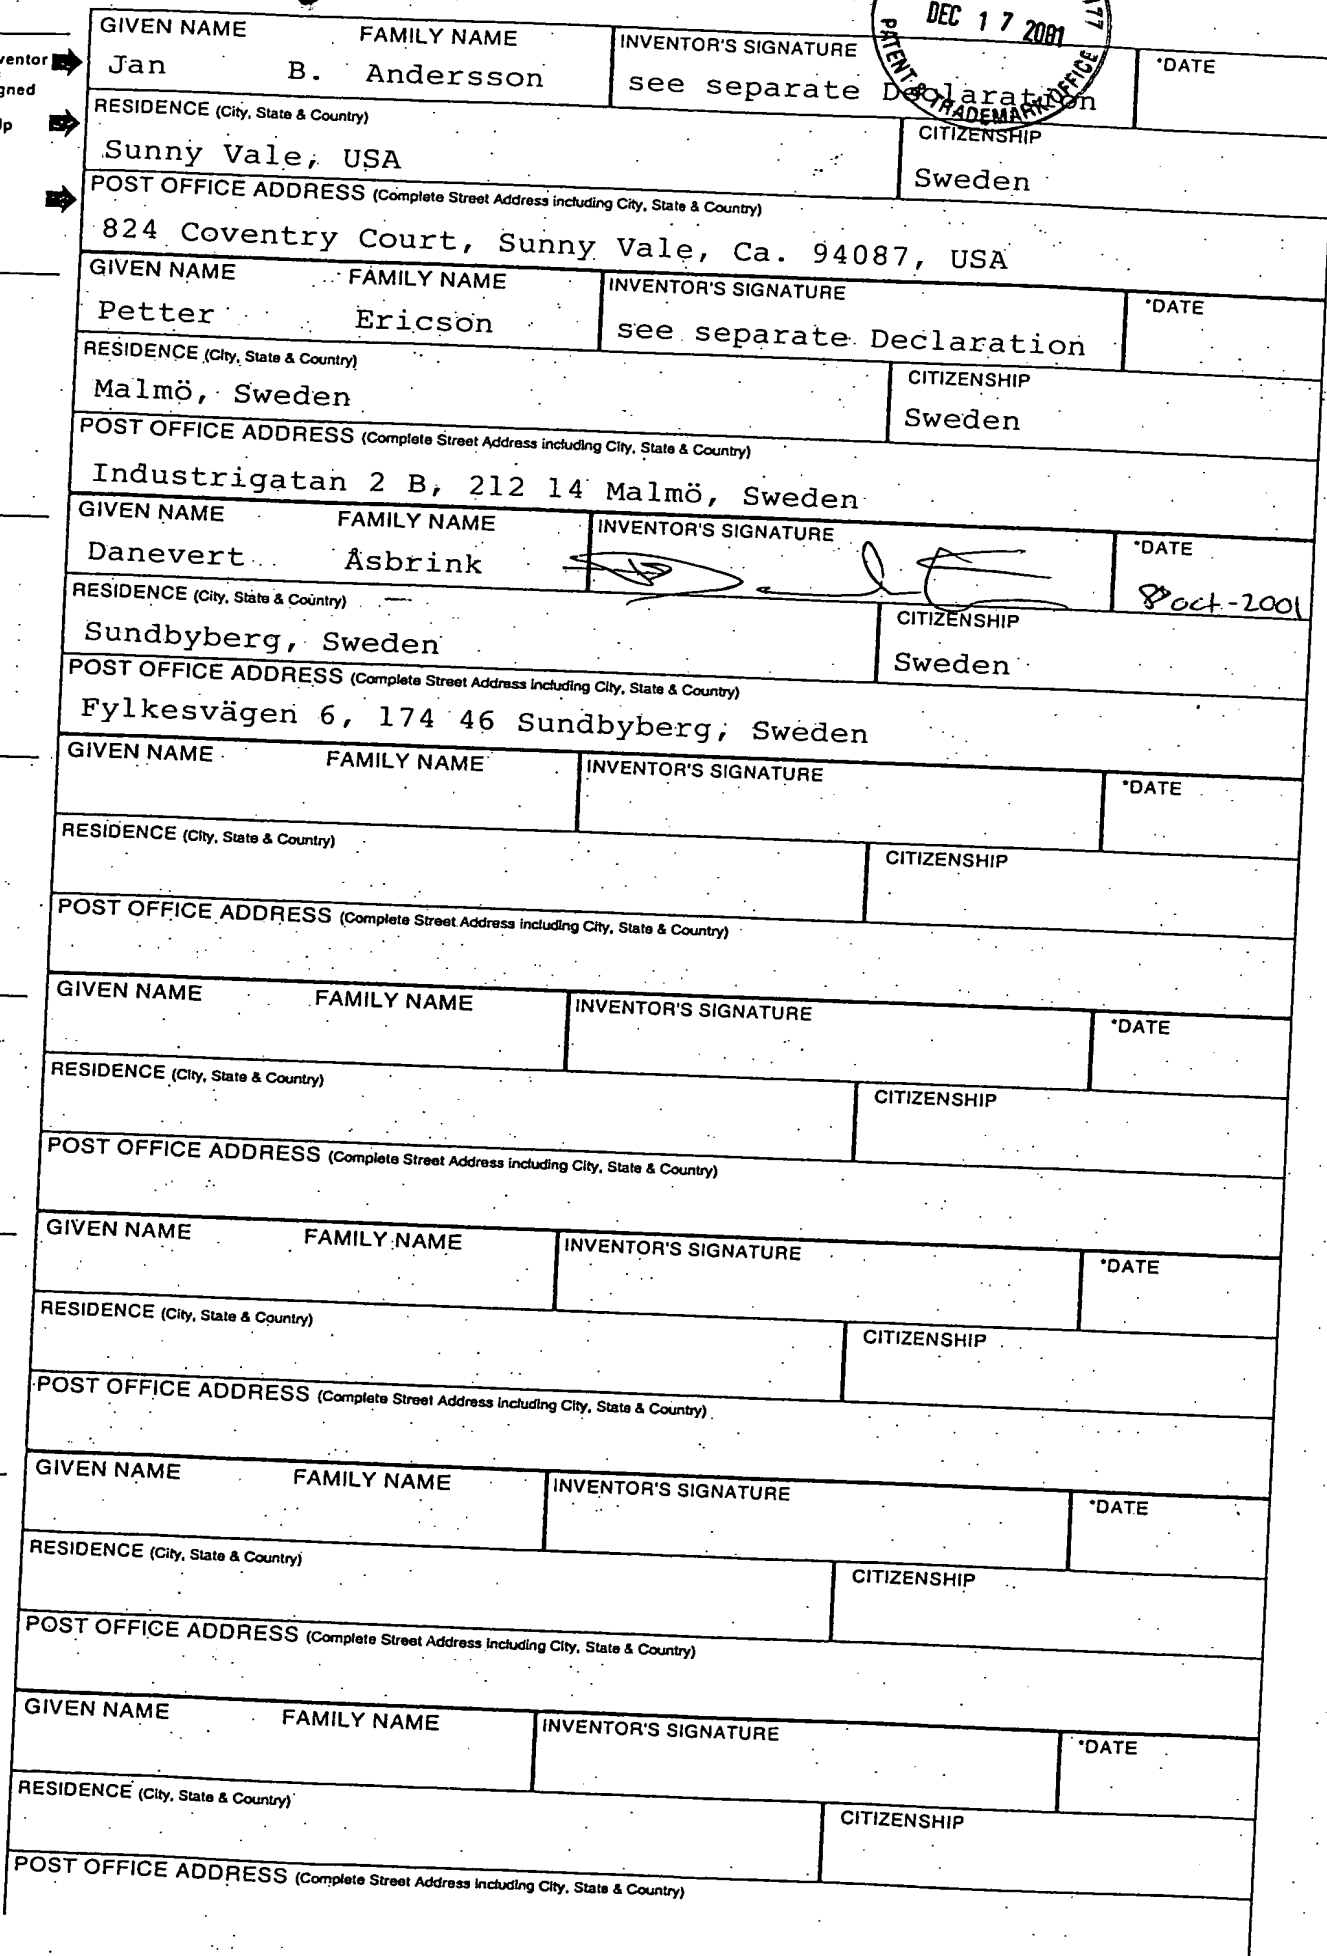 DEC 17 2001
PATENT & TRADEMARK OFFICE
GIVEN NAME FAMILY NAME INVENTOR'S SIGNATURE *DATE
Jan B. Andersson see separate Declaration
RESIDENCE (City, State & Country) CITIZENSHIP
Sunny Vale, USA Sweden
POST OFFICE ADDRESS (Complete Street Address including City, State & Country)
824 Coventry Court, Sunny Vale, Ca. 94087, USA
GIVEN NAME FAMILY NAME INVENTOR'S SIGNATURE *DATE
Petter Ericson see separate Declaration
RESIDENCE (City, State & Country) CITIZENSHIP
Malmö, Sweden Sweden
POST OFFICE ADDRESS (Complete Street Address including City, State & Country)
Industrigatan 2 B, 212 14 Malmö, Sweden
GIVEN NAME FAMILY NAME INVENTOR'S SIGNATURE *DATE
Danevert Åsbrink 8 oct-2001
RESIDENCE (City, State & Country) CITIZENSHIP
Sundbyberg, Sweden Sweden
POST OFFICE ADDRESS (Complete Street Address including City, State & Country)
Fylkesvägen 6, 174 46 Sundbyberg, Sweden
GIVEN NAME FAMILY NAME INVENTOR'S SIGNATURE *DATE
RESIDENCE (City, State & Country) CITIZENSHIP
POST OFFICE ADDRESS (Complete Street Address including City, State & Country)
GIVEN NAME FAMILY NAME INVENTOR'S SIGNATURE *DATE
RESIDENCE (City, State & Country) CITIZENSHIP
POST OFFICE ADDRESS (Complete Street Address including City, State & Country)
GIVEN NAME FAMILY NAME INVENTOR'S SIGNATURE *DATE
RESIDENCE (City, State & Country) CITIZENSHIP
POST OFFICE ADDRESS (Complete Street Address including City, State & Country)
GIVEN NAME FAMILY NAME INVENTOR'S SIGNATURE *DATE
RESIDENCE (City, State & Country) CITIZENSHIP
POST OFFICE ADDRESS (Complete Street Address including City, State & Country)
GIVEN NAME FAMILY NAME INVENTOR'S SIGNATURE *DATE
RESIDENCE (City, State & Country) CITIZENSHIP
POST OFFICE ADDRESS (Complete Street Address including City, State & Country)